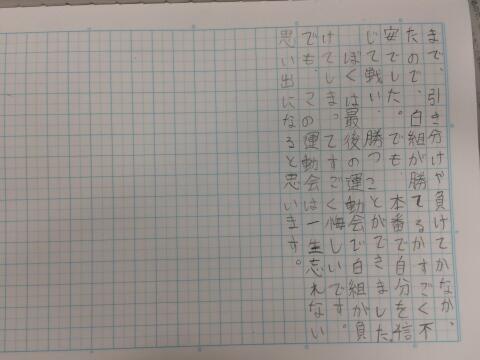 まで、引き分けや負けてかなか、
たので、白組が勝てるかすごく不
安でした。でも、本番で自分を信
じて戦い、勝つことができました。
ぼくは最後の運動会で白組が負
けてしまってすごく悔しいです。
でも、この運動会は一生忘れない
思い出になると思います。